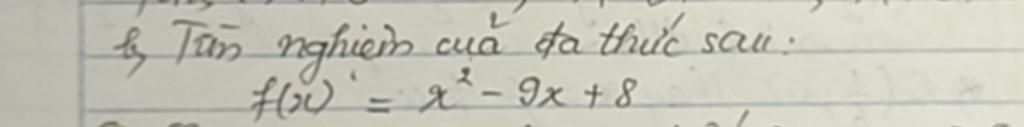 b, Tìm nghiệm của đa thức sau:
f(x) = x² - 9x + 8